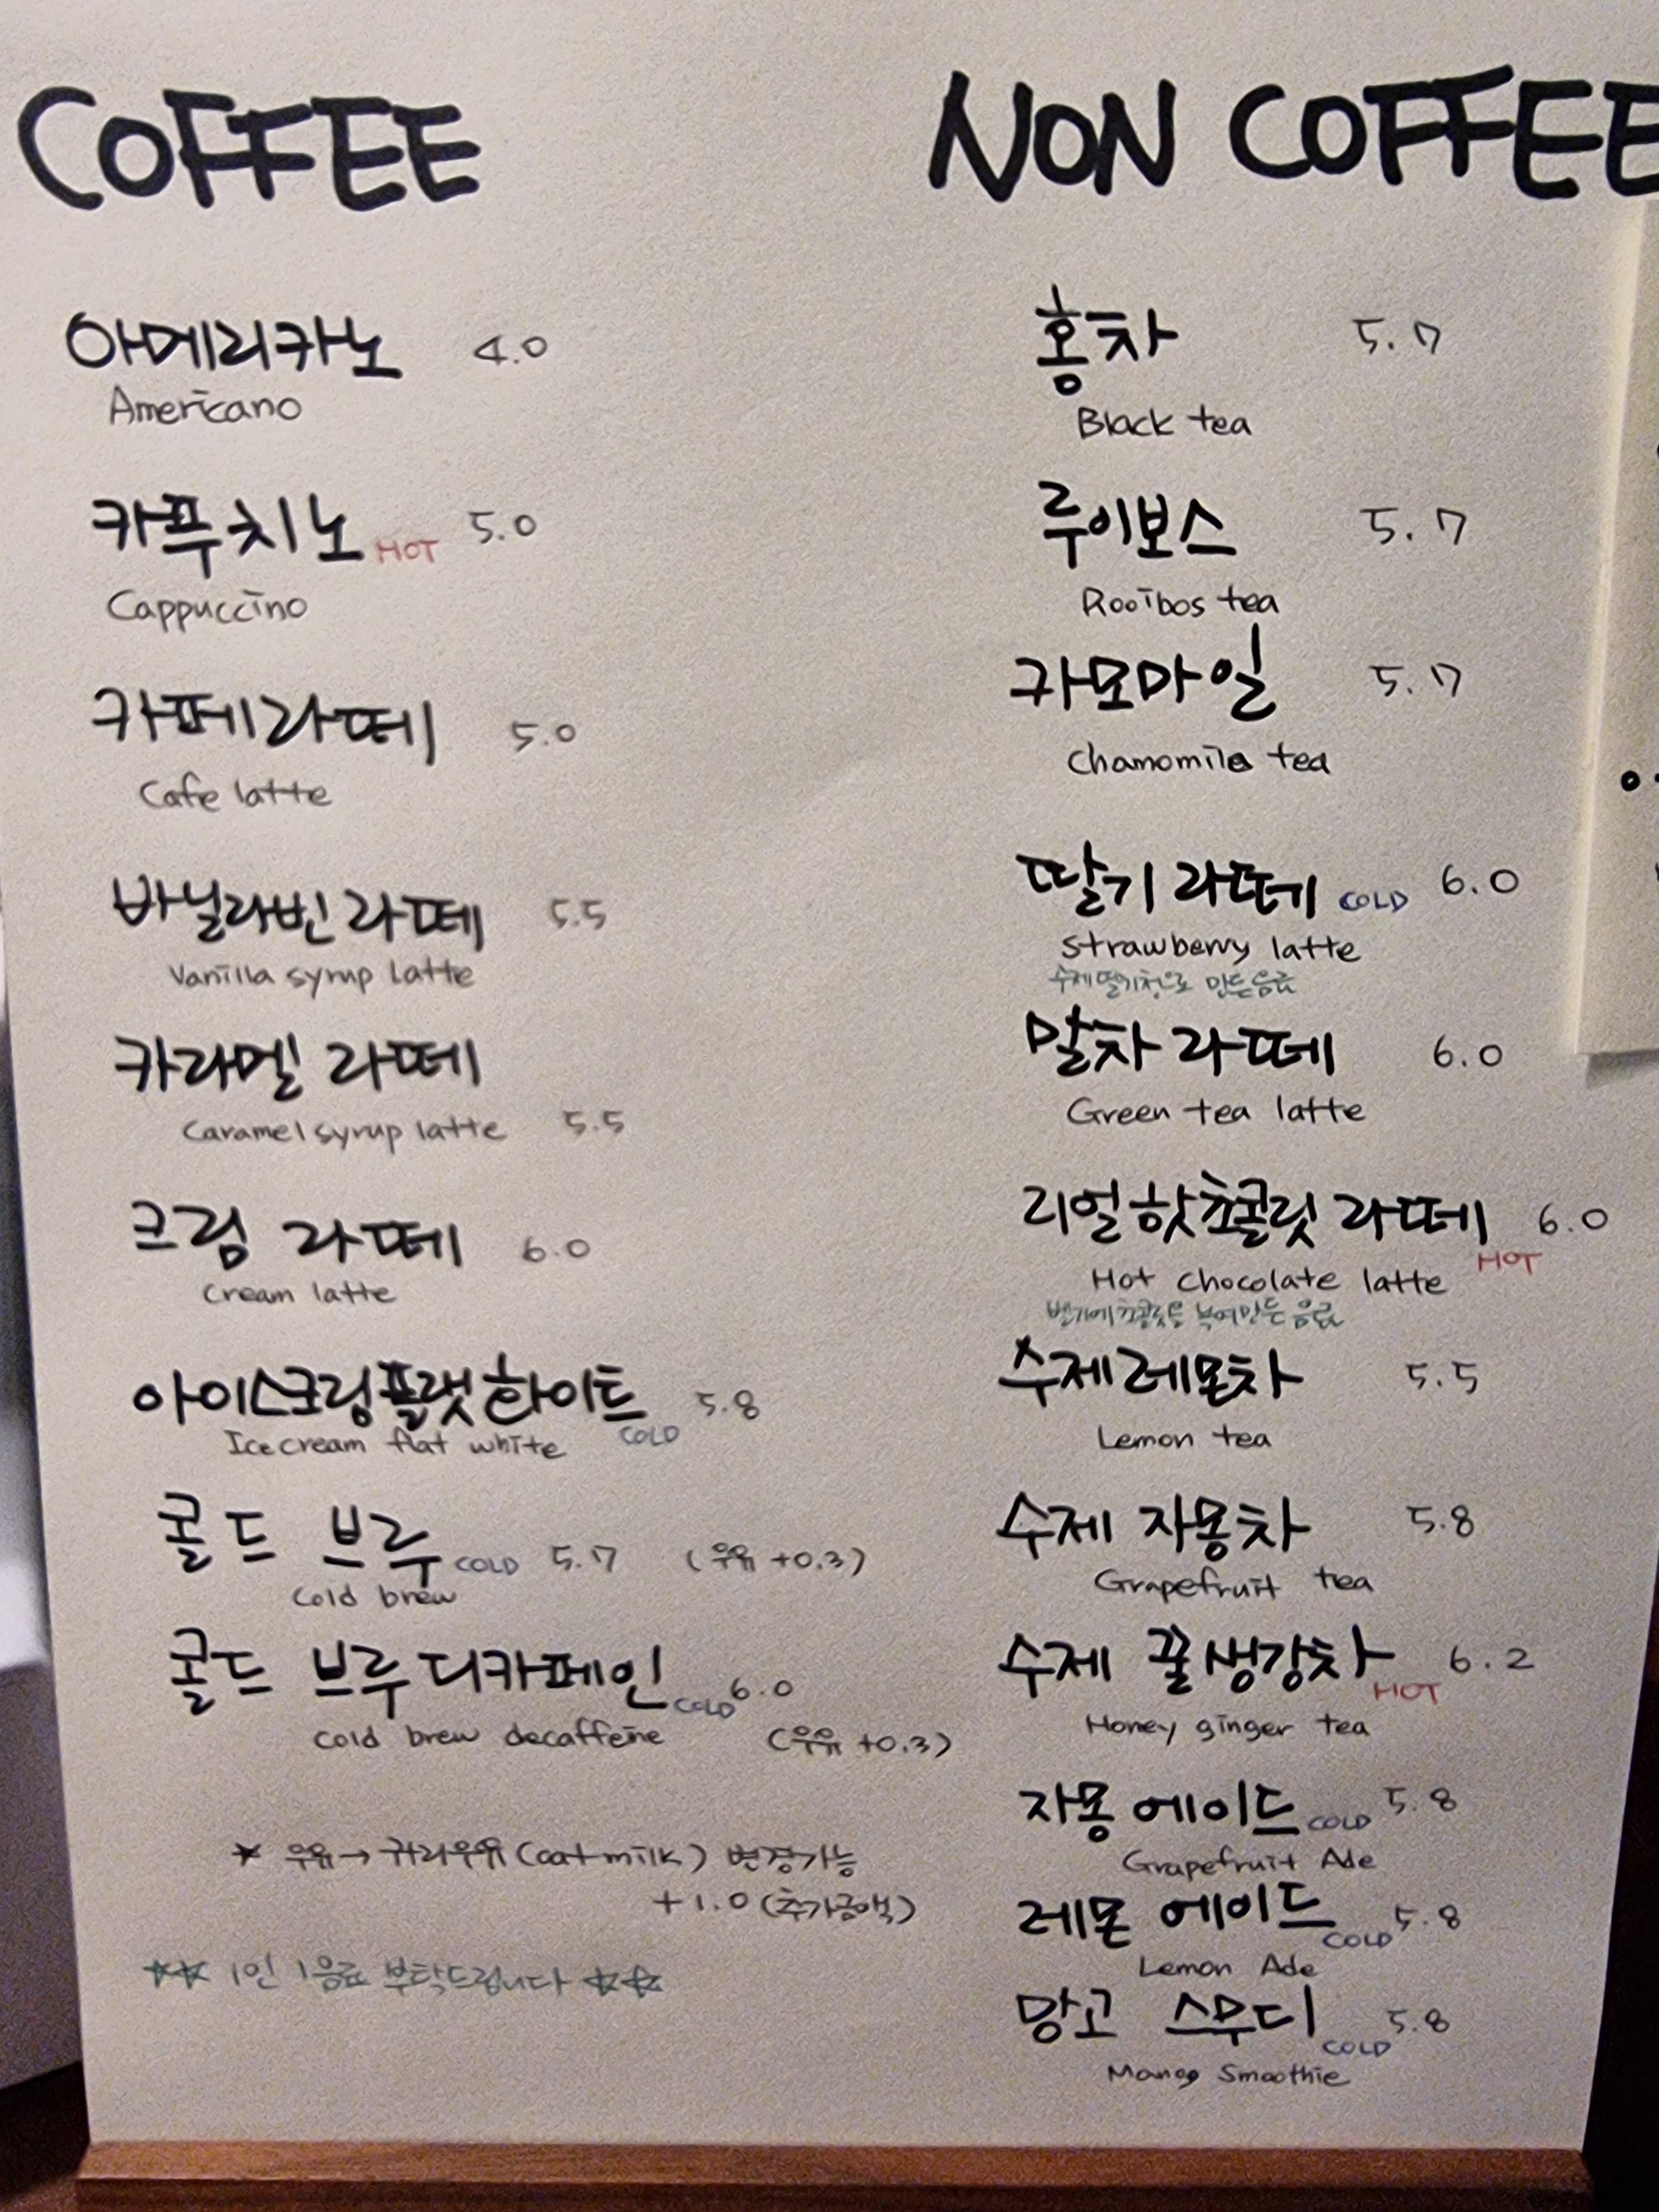 COFFEE
아메리카노 4.0
Americano
카푸치노 HOT 5.0
Cappuccino
카페라떼 5.0
Cafe latte
바닐라빈 라떼 5.5
Vanilla syrup latte
카라멜 라떼
Caramel syrup latte 5.5
크림 라떼 6.0
Cream latte
아이스크림플랫화이트 5.8
Ice cream flat white COLD
콜드 브루 COLD 5.7 (우유 +0.3)
Cold brew
콜드 브루 디카페인 COLD 6.0
cold brew decaffeine (우유 +0.3)
* 우유→귀리우유(oatmilk) 변경가능
+1.0 (추가금액)
☆☆ 1인 1음료 부탁드립니다 ☆☆
NON COFFEE
홍차 5.7
Black tea
루이보스 5.7
Rooibos tea
카모마일 5.7
Chamomile tea
딸기 라떼 COLD 6.0
Strawberry latte
수제딸기청으로 만든음료
말차 라떼 6.0
Green tea latte
리얼 핫초콜릿 라떼 6.0
Hot chocolate latte HOT
초콜릿을 녹여만든 음료
수제레몬차 5.5
Lemon tea
수제 자몽차 5.8
Grapefruit tea
수제 꿀생강차 HOT 6.2
Honey ginger tea
자몽 에이드 COLD 5.8
Grapefruit Ade
레몬 에이드 COLD 5.8
Lemon Ade
망고 스무디 COLD 5.8
Mango Smoothie